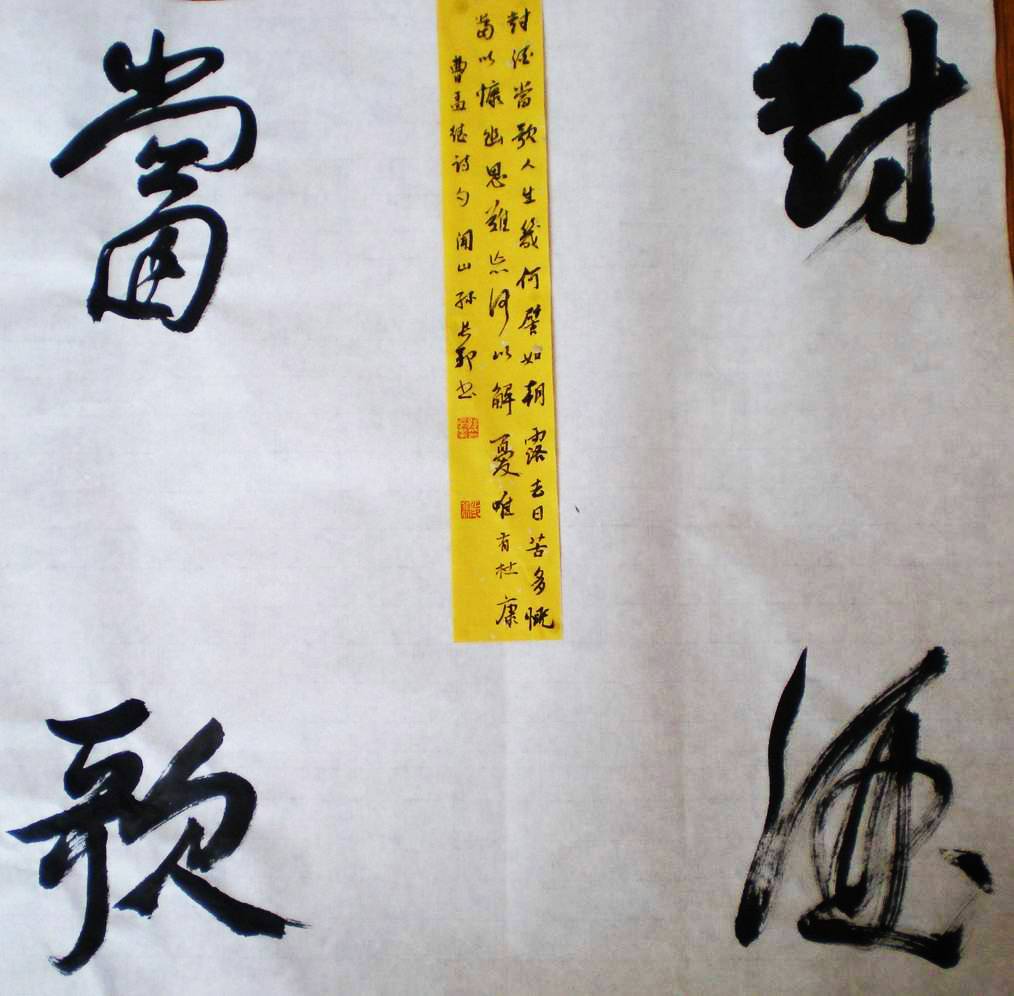 對酒
當歌
對酒當歌人生幾何譬如朝露去日苦多慨
當以慷幽思難忘何以解憂唯有杜康
曹孟德詩句 山孫長書